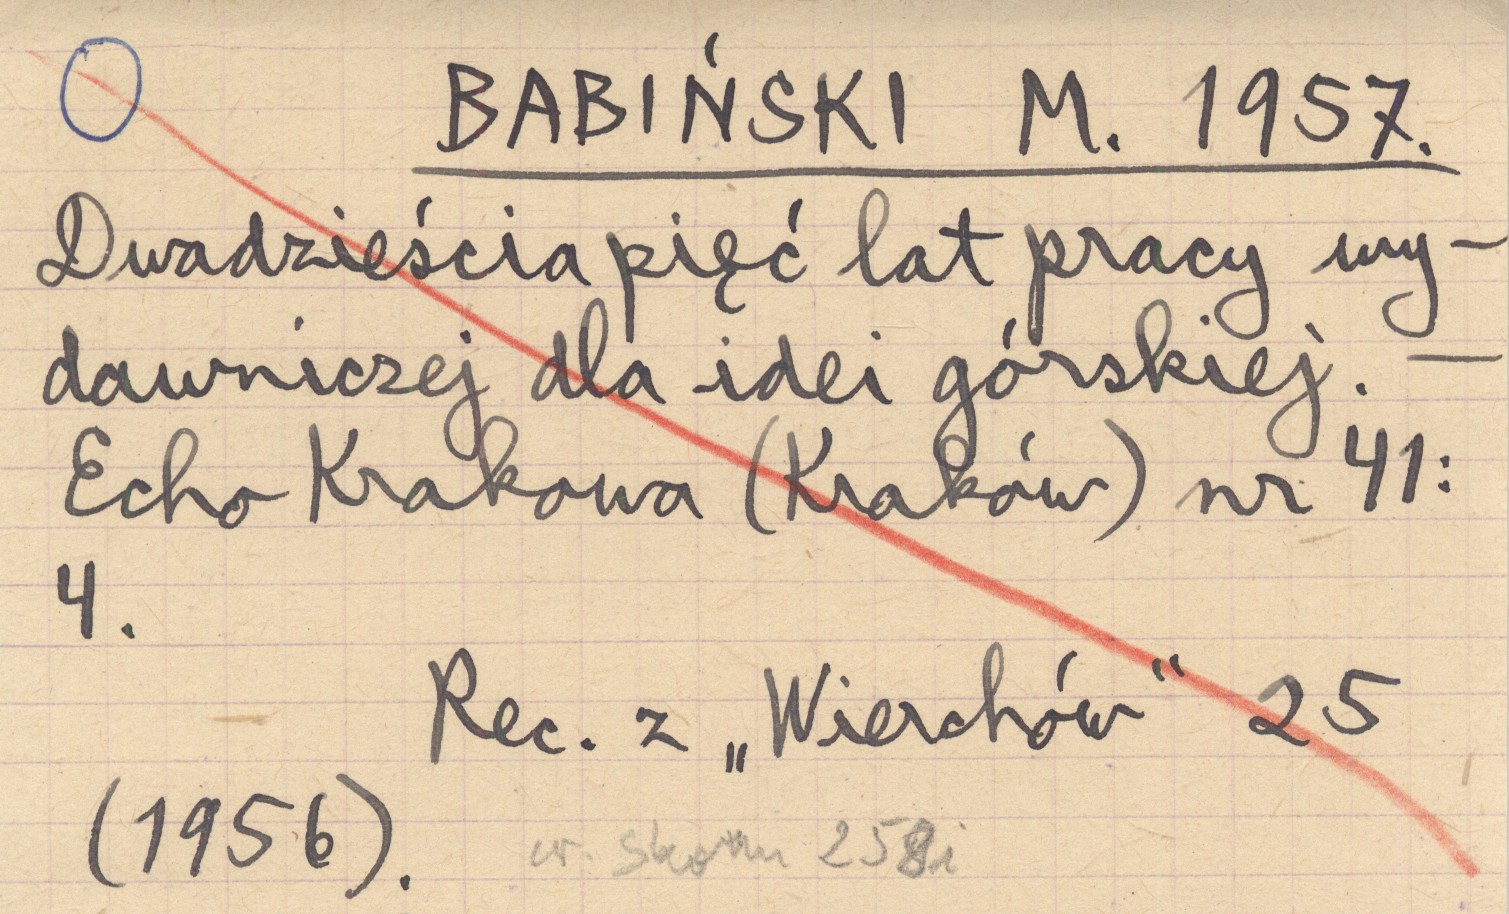 BABIŃSKI M. 1957.
Dwadzieścia pięć lat pracy wy-
dawniczej dla idei górskiej. —
Echo Krakowa (Kraków) nr 41:
4.
Rec. z „Wierchów" 25
(1956).